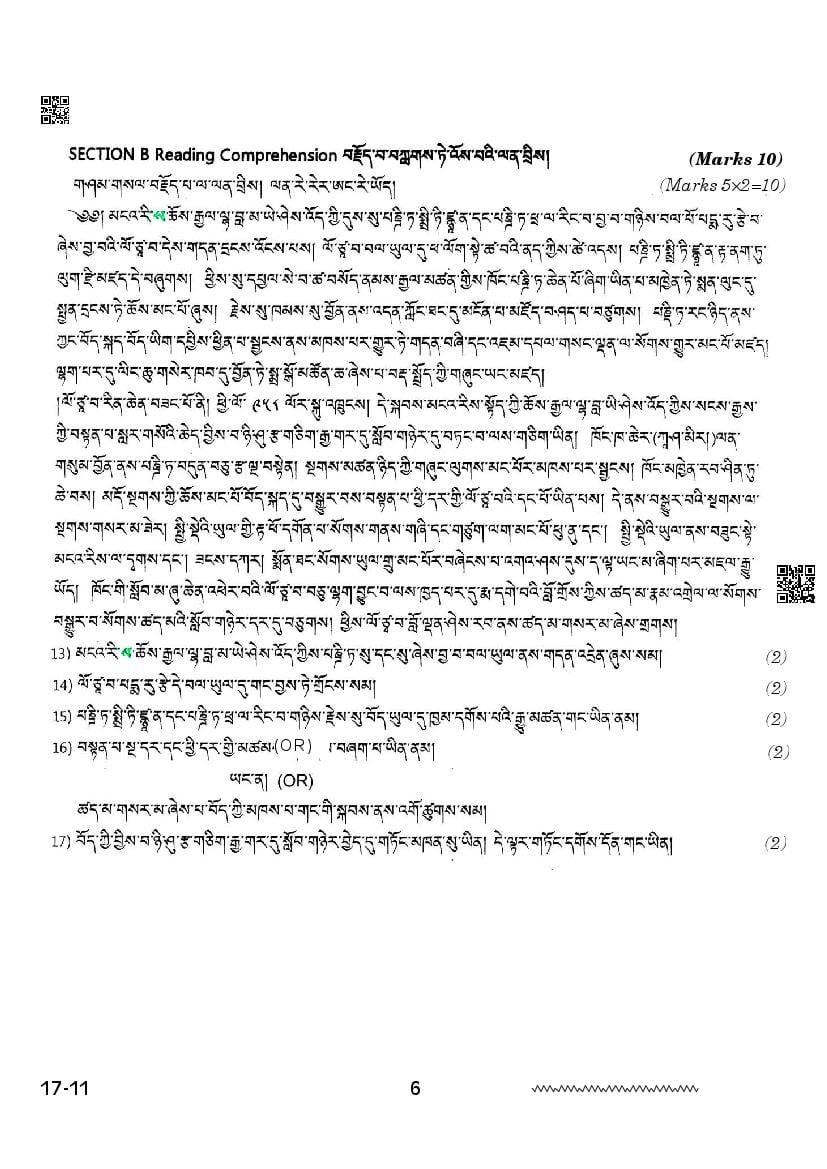 SECTION B Reading Comprehension བརྗོད་བ་བཀླགས་ཏེ་འོས་བའི་ལན་བྲིས། (Marks 10)
གཤམ་གསལ་བརྗོད་པ་ལ་ལན་བྲིས། ལན་རེ་རེར་ཨང་རེ་ཡོད། (Marks 5×2=10)
༄༅། མངའ་རི་ས་ཆོས་རྒྱལ་ལྷ་བླ་མ་ཡེ་ཤེས་འོད་ཀྱི་དུས་སུ་པཎྜི་ཏ་སྨྲི་ཏི་ཛྙཱ་ན་དང་པཎྜི་ཏ་ཕྲ་ལ་རིང་བ་བྱ་བ་གཉིས་བལ་པོ་པདྨ་རུ་རྩེ་བ་
ཞེས་བྱ་བའི་ལོ་ཙཱ་བ་དེས་གདན་དྲངས་འོངས་པས། ལོ་ཙཱ་བ་བལ་ཡུལ་དུ་ཕ་ལོག་སྟེ་ཚ་བའི་ནད་ཀྱིས་ཚེ་འདས། པཎྜི་ཏ་སྨྲི་ཏི་ཛྙཱ་ན་རྟ་ནག་ཏུ་
ལུག་རྫི་མཛད་དེ་བཞུགས། ཕྱིས་སུ་དཔྱལ་སེ་བ་ཚ་བསོད་ནམས་རྒྱལ་མཚན་གྱིས་ཁོང་པཎྜི་ཏ་ཆེན་པོ་ཞིག་ཡིན་པ་མཁྱེན་ཏེ་སྨན་ལུང་དུ་
སྤྱན་དྲངས་ཏེ་ཆོས་མང་པོ་ཞུས། རྗེས་སུ་ཁམས་སུ་བྱོན་ནས་འདན་ཀློང་ཐང་དུ་མངོན་པ་མཛོད་བཤད་པ་བཙུགས། པཎྜི་ཏ་རང་ཉིད་ནས་
ཀྱང་བོད་སྐད་བོད་ཡིག་དཔྱིས་ཕྱིན་པ་སྦྱངས་ནས་མཁས་པར་གྱུར་ཏེ་གདན་བཞི་དང་འཇམ་དཔལ་གསང་ལྡན་ལ་སོགས་གྱུར་མང་པོ་མཛད།
ལྷག་པར་དུ་ལིང་ཆུ་གསེར་ཁབ་དུ་བྱོན་ཏེ་སྨྲ་སྒོ་མཚོན་ཆ་ཞེས་པ་བརྡ་སྤྲོད་ཀྱི་གཞུང་ཡང་མཛད།
།ལོ་ཙཱ་བ་རིན་ཆེན་བཟང་པོ་ནི། ཕྱི་ལོ་ ༩༥༨ ལོར་སྐུ་འཁྲུངས། དེ་སྐབས་མངའ་རིས་སྟོད་ཀྱི་ཆོས་རྒྱལ་ལྷ་བླ་ཡེ་ཤེས་འོད་ཀྱིས་སངས་རྒྱས་
ཀྱི་བསྟན་པ་སླར་གསོའི་ཆེད་བྱིས་བ་ཉི་ཤུ་རྩ་གཅིག་རྒྱ་གར་དུ་སློབ་གཉེར་དུ་བཏང་བ་ལས་གཅིག་ཡིན། ཁོང་ཁ་ཆེར་(ཀཱཤ་མིར།)ལན་
གསུམ་བྱོན་ནས་པཎྜི་ཏ་བདུན་བཅུ་རྩ་ལྔ་བསྟེན། སྔགས་མཚན་ཉིད་ཀྱི་གཞུང་ལུགས་མང་པོར་མཁས་པར་སྦྱངས། ཁོང་མཁྱེན་རབ་ཤིན་ཏུ་
ཆེ་བས། མདོ་སྔགས་ཀྱི་ཆོས་མང་པོ་བོད་སྐད་དུ་བསྒྱུར་བས་བསྟན་པ་ཕྱི་དར་གྱི་ལོ་ཙཱ་བའི་དང་པོ་ཡིན་པས། དེ་ནས་བསྒྱུར་བའི་སྔགས་ལ་
སྔགས་གསར་མ་ཟེར། སྤྱི་སྡེའི་ཡུལ་གྱི་རྟ་ཕོ་དགོན་པ་སོགས་གནས་གཞི་དང་གཙུག་ལག་མང་པོ་ཕུ་ནུ་དང་། སྤྱི་སྡེའི་ཡུལ་ནས་བཟུང་སྟེ་
མངའ་རིས་ལ་དྭགས་དང་། ཟངས་དཀར། སྨོན་ཐང་སོགས་ཡུལ་གྲུ་མང་པོར་བཞེངས་པ་འགའ་ཤས་དུས་ད་ལྟ་ཡང་མ་ཞིག་པར་མཇལ་རྒྱུ་
ཡོད། ཁོང་གི་སློབ་མ་ཞུ་ཆེན་འཕེར་བའི་ལོ་ཙཱ་བ་བཅུ་ལྷག་བྱུང་བ་ལས་ཁྱད་པར་དུ་རྨ་དགེ་བའི་བློ་གྲོས་ཀྱིས་ཚད་མ་རྣམ་འགྲེལ་ལ་སོགས་
བསྒྱུར་བ་སོགས་ཚད་མའི་སློབ་གཉེར་དར་དུ་བཅུགས། ཕྱིས་ལོ་ཙཱ་བ་བློ་ལྡན་ཤེས་རབ་ནས་ཚད་མ་གསར་མ་ཞེས་གྲགས།
13) མངའ་རི་ས་ཆོས་རྒྱལ་ལྷ་བླ་མ་ཡེ་ཤེས་འོད་ཀྱིས་པཎྜི་ཏ་སུ་དང་སུ་ཞེས་བྱ་བ་བལ་ཡུལ་ནས་གདན་འདྲེན་ཞུས་སམ། (2)
14) ལོ་ཙཱ་བ་པདྨ་རུ་རྩེ་དེ་བལ་ཡུལ་དུ་གང་བྱས་ཏེ་གྲོངས་སམ། (2)
15) པཎྜི་ཏ་སྨྲི་ཏི་ཛྙཱ་ན་དང་པཎྜི་ཏ་ཕྲ་ལ་རིང་བ་གཉིས་རྗེས་སུ་བོད་ཡུལ་དུ་ཁྱམ་དགོས་པའི་རྒྱུ་མཚན་གང་ཡིན་ནམ། (2)
16) བསྟན་བ་སྔ་དར་དང་ཕྱི་དར་གྱི་མཚམ་(OR) བཞག་པ་ཡིན་ནམ། (2)
ཡང་ན། (OR)
ཚད་མ་གསར་མ་ཞེས་པ་བོད་ཀྱི་མཁས་པ་གང་གི་སྐབས་ནས་འགོ་ཚུགས་སམ།
17) བོད་ཀྱི་བྱིས་བ་ཉི་ཤུ་རྩ་གཅིག་རྒྱ་གར་དུ་སློབ་གཉེར་བྱེད་དུ་གཏོང་མཁན་སུ་ཡིན། དེ་ལྟར་གཏོང་དགོས་དོན་གང་ཡིན། (2)
17-11 6